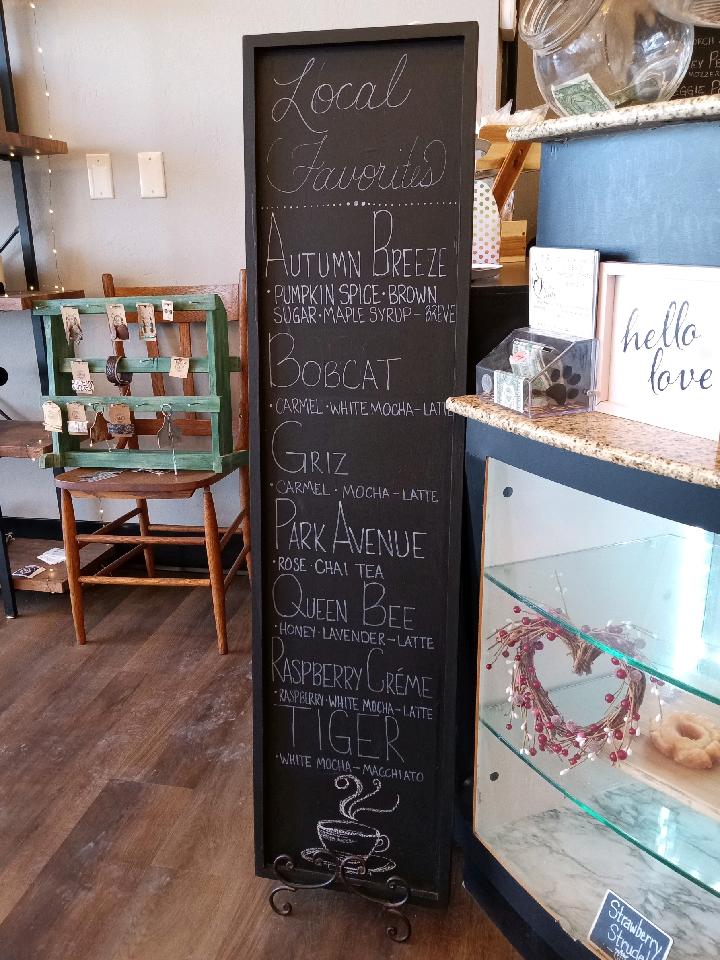 Local
Favorites
AUTUMN BREEZE
• PUMPKIN SPICE • BROWN
SUGAR • MAPLE SYRUP - BREVE
BOBCAT
• CARMEL • WHITE MOCHA - LATT
GRIZ
• CARMEL • MOCHA - LATTE
PARK AVENUE
• ROSE • CHAI TEA
QUEEN BEE
• HONEY • LAVENDER - LATTE
RASPBERRY CRÉME
• RASPBERRY • WHITE MOCHA - LATTE
TIGER
• WHITE MOCHA - MACCHIATO
hello
love
Strawberry
Strudel